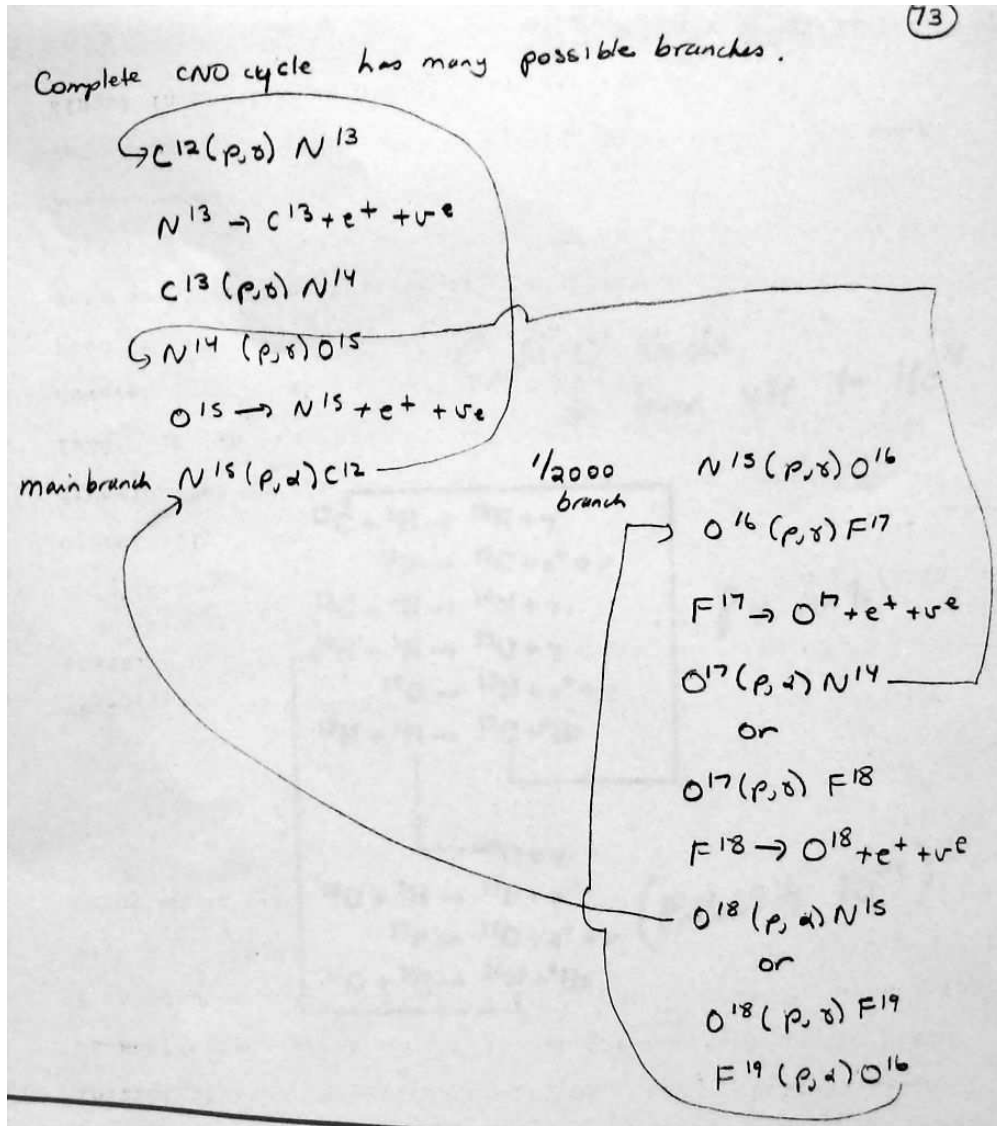 73
Complete CNO cycle has many possible branches.
C¹²(p,γ) N¹³
N¹³ → C¹³ + e⁺ + νᵉ
C¹³ (p,γ) N¹⁴
N¹⁴ (p,γ) O¹⁵
O¹⁵ → N¹⁵ + e⁺ + νe
main branch N¹⁵(p,α) C¹²
1/2000
branch
N¹⁵(p,γ) O¹⁶
O¹⁶(p,γ) F¹⁷
F¹⁷ → O¹⁷ + e⁺ + νᵉ
O¹⁷(p,α) N¹⁴
or
O¹⁷(p,γ) F¹⁸
F¹⁸ → O¹⁸ + e⁺ + νᵉ
O¹⁸(p,α) N¹⁵
or
O¹⁸(p,γ) F¹⁹
F¹⁹(p,α) O¹⁶